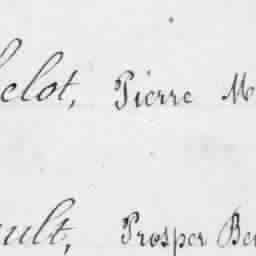 elot, Pierre M
ult, Prosper Be